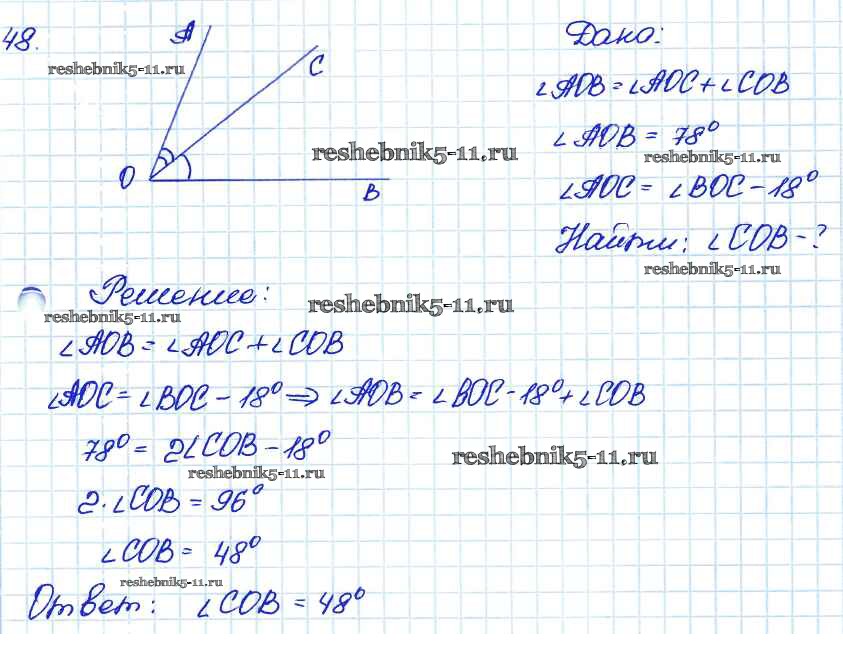 48.
A
Дано:
reshebnik5-11.ru
C
∠AOB = ∠AOC + ∠COB
∠AOB = 78°
reshebnik5-11.ru
reshebnik5-11.ru
O
B
∠AOC = ∠BOC - 18°
Найти: ∠COB - ?
reshebnik5-11.ru
Решение:
reshebnik5-11.ru
reshebnik5-11.ru
∠AOB = ∠AOC + ∠COB
∠AOC = ∠BOC - 18° ⇒ ∠AOB = ∠BOC - 18° + ∠COB
78° = 2∠COB - 18°
reshebnik5-11.ru
reshebnik5-11.ru
2·∠COB = 96°
∠COB = 48°
reshebnik5-11.ru
Ответ: ∠COB = 48°